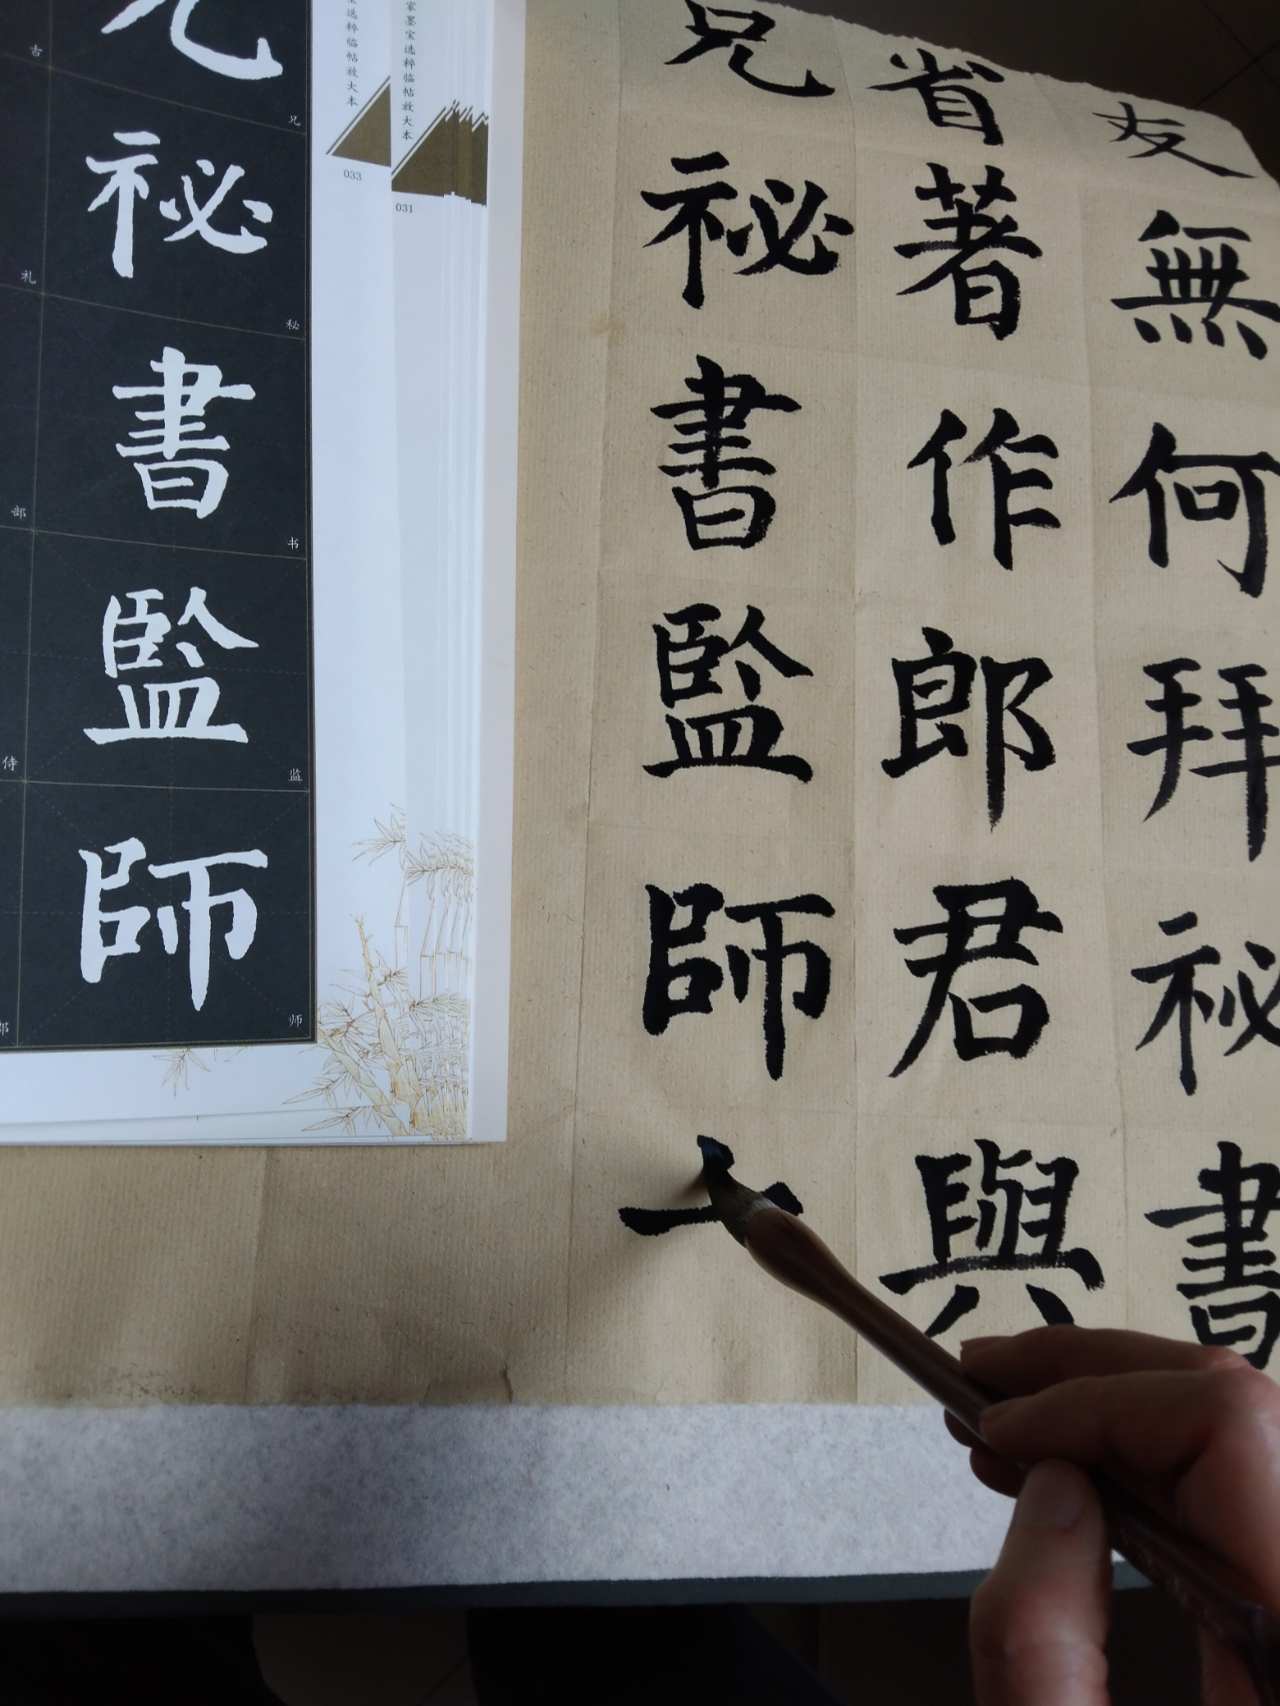 友無何拜祕書
省著作郎君與
兄祕書監師
兄
祕
書
監
師
兄
秘
书
监
师
古
礼
部
侍
郎
家墨宝选粹临帖放大本
宝选粹临帖放大本
033
031